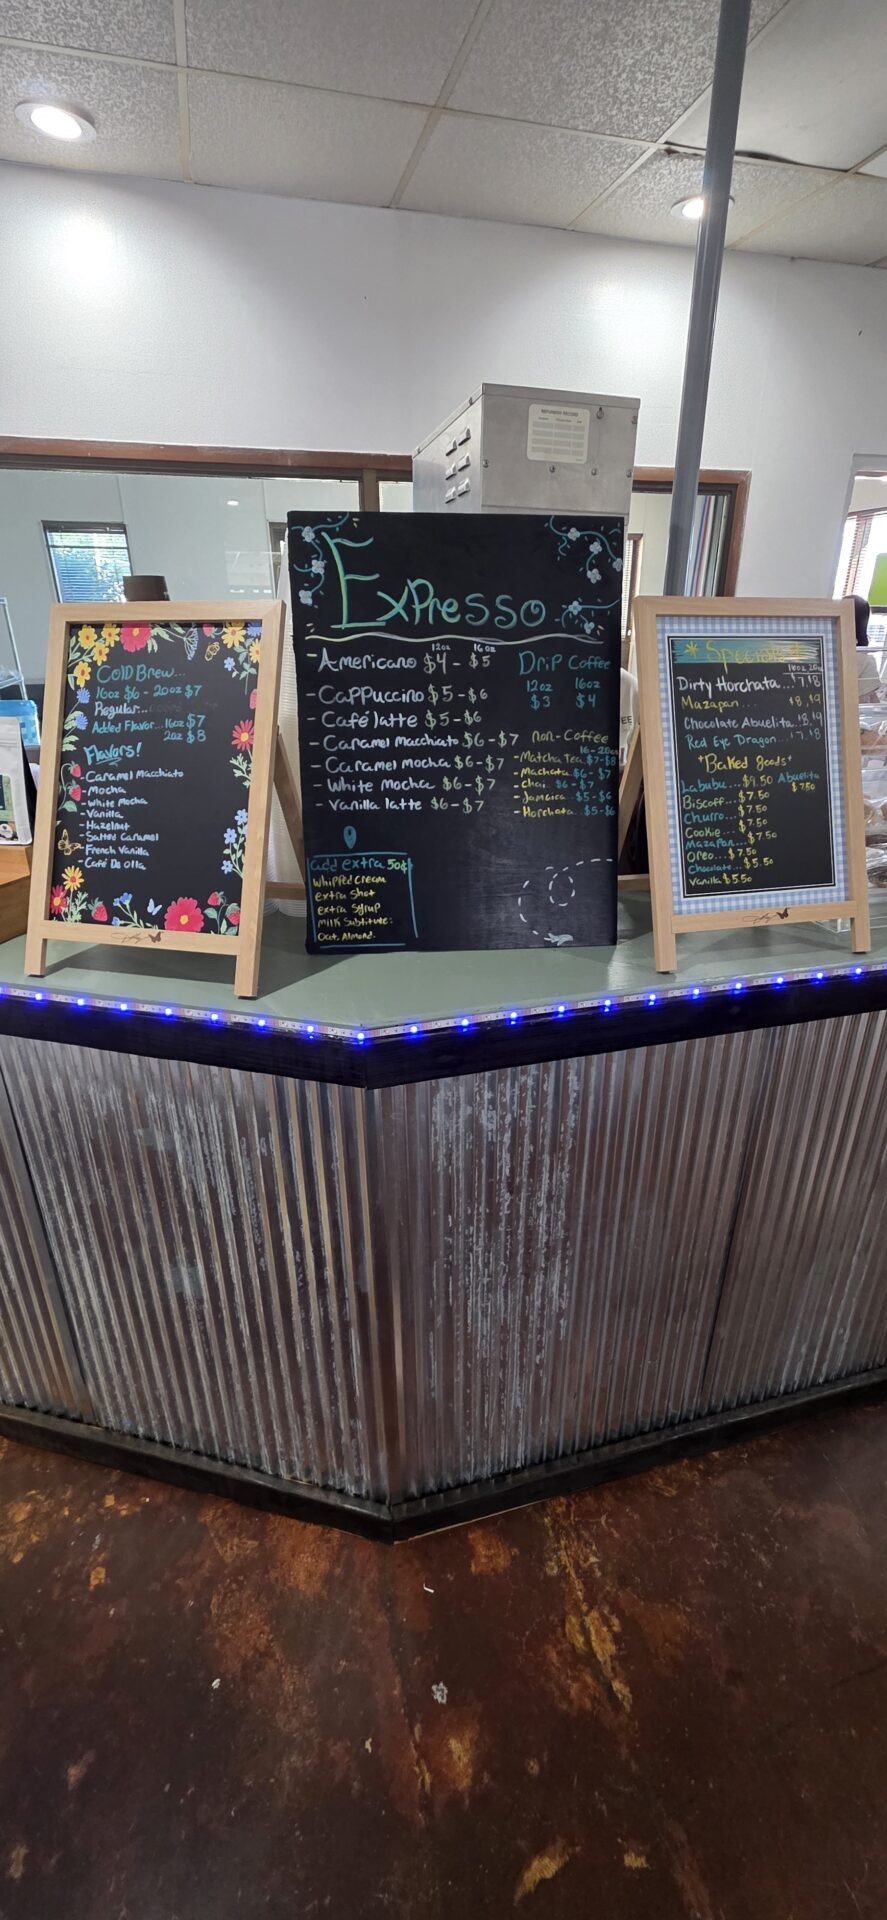 COLD BREW...
16oz $6 - 20oz $7
Regular...
Added Flavor... 16oz $7
2oz $8
Flavors!
- Caramel Macchiato
- Mocha
- White Mocha
- Vanilla
- Hazelnut
- Salted Caramel
- French Vanilla
- Café De Olla
ExPresso
12oz 16oz
- Americano $4 - $5
- Cappuccino $5 - $6
- Café latte $5 - $6
- Caramel Macchiato $6 - $7
- Caramel mocha $6 - $7
- White mocha $6 - $7
- Vanilla latte $6 - $7
Drip Coffee
12oz 16oz
$3 $4
non-Coffee
16 - 20oz
- Matcha Tea $7-$8
- Machata $6 - $7
- Chai $6 - $7
- Jamaica $5 - $6
- Horchata $5-$6
add extra 50¢
Whipped cream
extra shot
extra Syrup
Milk Substitute:
Oat, Almond.
Specials
16oz 20oz
Dirty Horchata... $7, $8
Mazapan... $8, $9
Chocolate Abuelita... $8, $9
Red Eye Dragon... $7, $8
*Baked goods*
Labubu... $9.50 Abuelita
$7.50
Biscoff... $7.50
Churro... $7.50
Cookie... $7.50
Mazapan... $7.50
Oreo... $7.50
Chocolate... $5.50
Vanilla $5.50